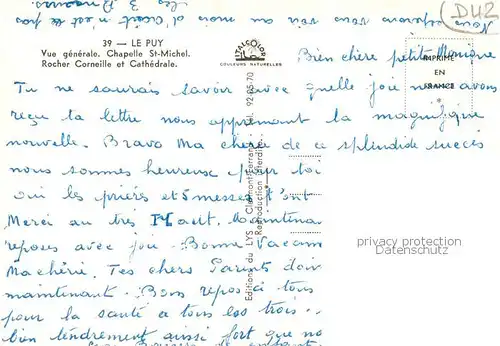 DU42
39 — LE PUY
Vue générale. Chapelle St-Michel.
Rocher Corneille et Cathédrale.
ITALCOLOR
COULEURS NATURELLES
IMPRIMÉ
EN
FRANCE
Editions du LYS Clermont-Ferrand Tél. 92-85-70
Reproduction interdite
Nous espérons vous voir au mois d'août n'est ce pas
les 3
Bien chère petite Monique
Tu ne saurais savoir avec quelle joie nous avons
reçu ta lettre nous apprenant la magnifique
nouvelle. Bravo Ma chère de ce splendide succès
nous sommes heureuse pour toi
oui les prières et messes t'ont
Merci au très Haut. Maintena
reposes avec joie. Bonne Vacan
Ma chérie. Tes chers Parents doiv
maintenant. Bons repos à tous
pour la santé à tous les trois.
bien tendrement aussi fort que no
privacy protection
DATENSCHUTZ